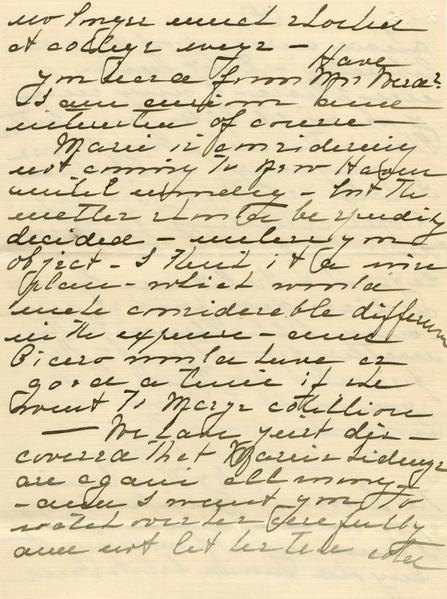 no longer much shocked
at college ways —
Have
you heard from Mrs
I am anxious and
of course —
Marie is considering
not coming to New Haven
until monday — but the
matter should be speedily
decided — unless you
object — I think it a wise
plan — which would
make considerable difference
in the expense — and
Cicero would have as
good a time if he
went to Marys cotillion
— We have just dis-
covered that Maries kidneys
are again all wrong
— and I want you to
watch over her carefully
and not let her